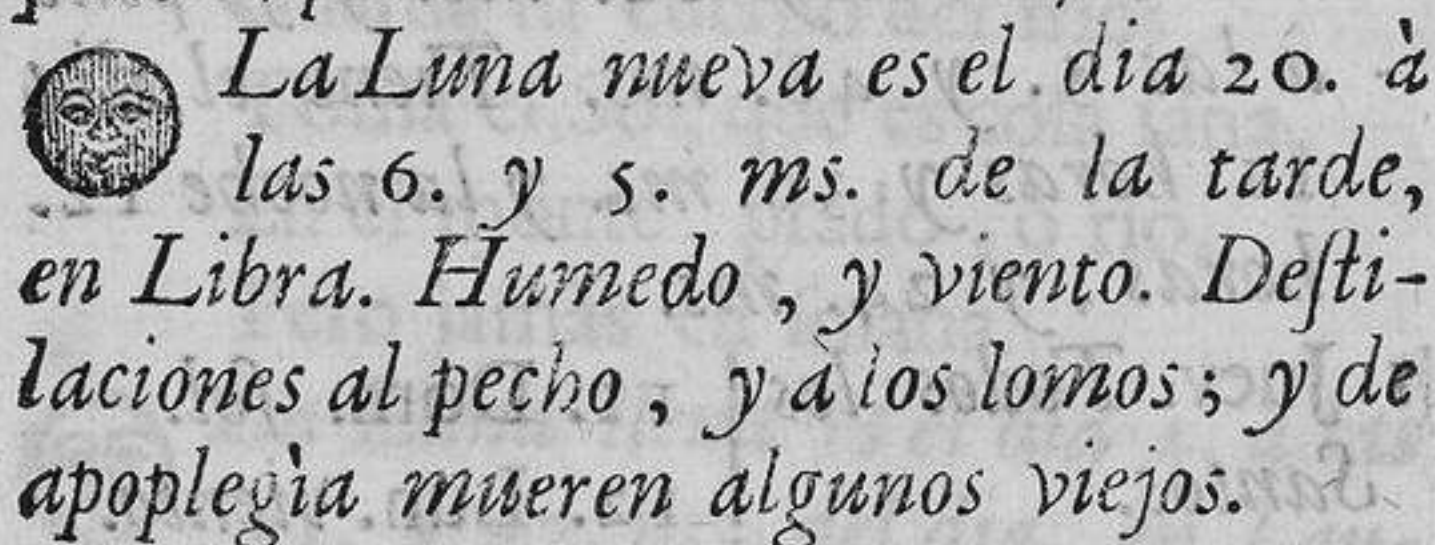 La Luna nueva es el dia 20. à
las 6. y 5. ms. de la tarde,
en Libra. Humedo, y viento. Deſti-
laciones al pecho, y à los lomos; y de
apoplegìa mueren algunos viejos.